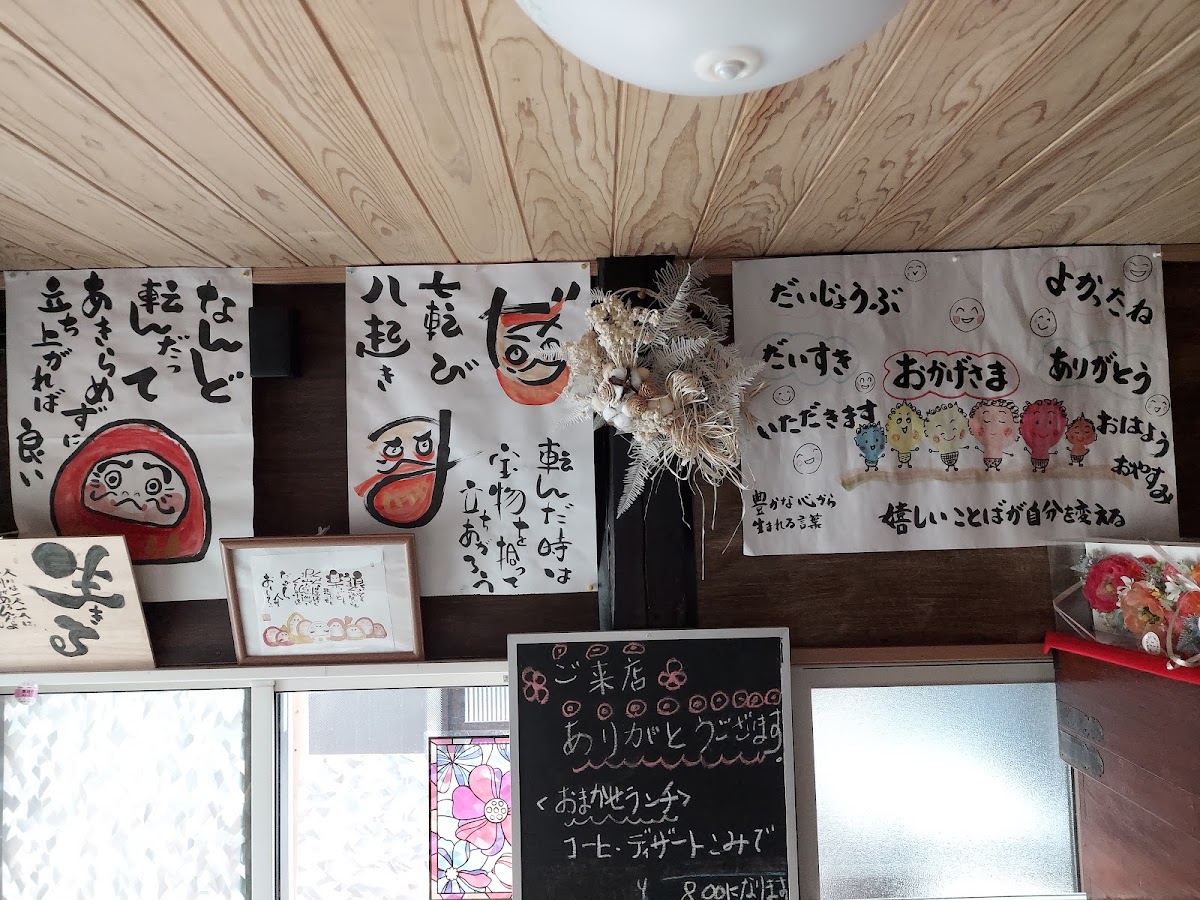 なんど
転んだって
あきらめずに
立ち上がれば
良い
七転び
八起き
転んだ時は
宝物を拾って
立ちあがろう
だいじょうぶ
よかったね
だいすき
おかげさま
ありがとう
いただきます
おはよう
おやすみ
豊かな心から
生まれる言葉
嬉しいことばが自分を変える
生きる
ご来店
ありがとうございます
<おまかせランチ>
コーヒ・ディザートこみで
¥800になります